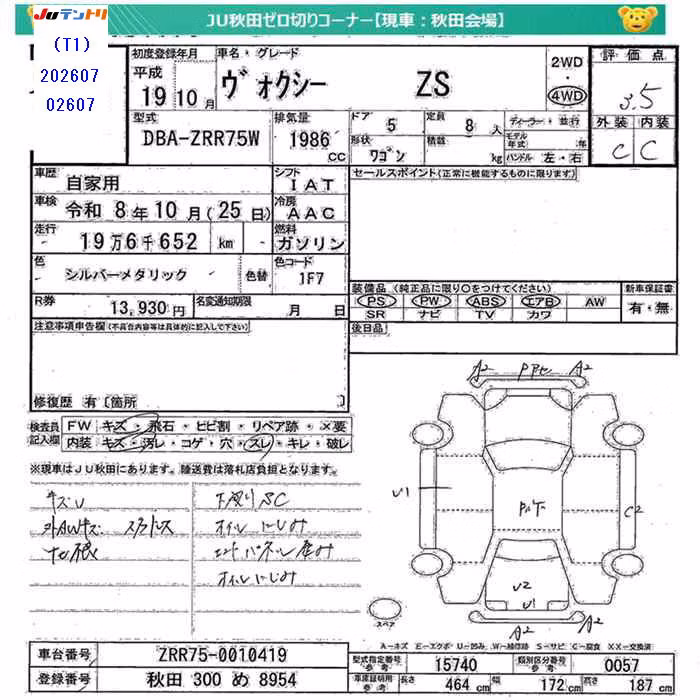 JUテントリ
JU秋田ゼロ切りコーナー【現車：秋田会場】
(T1)
202607
02607
初度登録年月 車名・グレード
平成 19 10月 ヴォクシー ZS
2WD・4WD
評価点
3.5
型式 DBA-ZRR75W
排気量 1986 CC
ドア 5 定員 8 人 ディーラー・並行
形状 ワゴン 積載 kg モデル年式 年
ハンドル 左・右
外装 内装
C C
車歴 自家用 シフト IAT
セールスポイント(正常に機能するものに限ります)
車検 令和 8年 10月(25日) 冷房 AAC
走行 19万6千652 km 燃料 ガソリン
色 シルバーメタリック 色替 色コード 1F7
R券 13,930円 名変通知期限 月 日
装備品 (純正品に限り○をつけてください) 新車保証書
PS PW ABS エアB AW 有・無
SR ナビ TV カワ
注意事項申告欄(不具合内容等は具体的に記入して下さい)
後日品
修復歴 有〔箇所 〕
検査員記入欄 FW キズ・飛石・ヒビ割・リペア跡・×要
内装 キズ・汚レ・コゲ・穴・スレ・キレ・破レ
※現車はJU秋田にあります。陸送費は落札店負担となります。
キズU 下廻りSC
外AWキズ スタットレス オイルにじみ
ナビ根 エンドパネル歪み
オイルにじみ
A2 A2
U1 C2
U2
U1
A2 A2
スペア
A=キズ E=エクボ U=凹み W=補修跡 S=サビ C=腐食 XX=交換済
車台番号 ZRR75-0010419
型式指定番号 参考 15740 類別区分番号 参考 0057
登録番号 秋田 300 め 8954
車庫証明用 参考 長さ 464 cm 幅 172 cm 高さ 187 cm